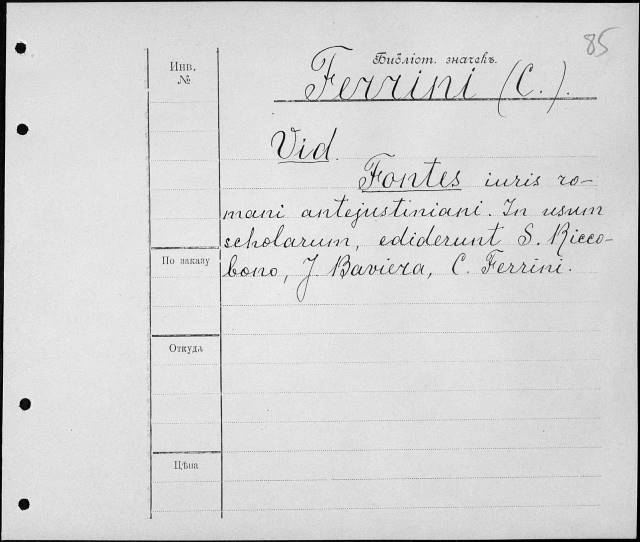 85
Библіот. значекъ.
Инв.
№
Ferrini (C.).
Vid.
Fontes iuris ro-
mani antejustiniani. In usum
scholarum, ediderunt S. Ricco-
bono, J Baviera, C. Ferrini.
По заказу
Откуда
Цѣна